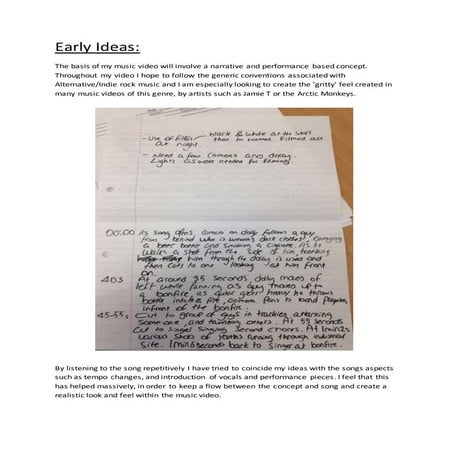 Early Ideas:
The basis of my music video will involve a narrative and performance based concept.
Throughout my video I hope to follow the generic conventions associated with
Alternative/Indie rock music and I am especially looking to create the 'gritty' feel created in
many music videos of this genre, by artists such as Jamie T or the Arctic Monkeys.
- Use of filter black & white at the start
then to normal. Filmed all
at night.
- Need a few cameras and dolly.
Lights as well needed for filming.
00:00 As song opens camera on dolly follows a guy
from behind who is wearing dark clothes, carrying
a beer bottle and smoking a cigarette. As he
walks a shot from the side of him tracking
him through the dolly is used and
then cuts to one looking at him front
on.
40s At around 35 seconds dolly moves of
left while panning as guy moves up to
a bonfire as guitar gets heavy he throws
bottle into the fire, camera pans to band playing
infront of the bonfire.
45-55s Cut to group of guys in tracking, attacking
someone and taunting others. At 55 seconds
cut to singer singing second chorus. At 1min
various shots of youths running through industrial
site. 1min 6 seconds back to singer at bonfire.
By listening to the song repetitively I have tried to coincide my ideas with the songs aspects
such as tempo changes, and introduction of vocals and performance pieces. I feel that this
has helped massively, in order to keep a flow between the concept and song and create a
realistic look and feel within the music video.